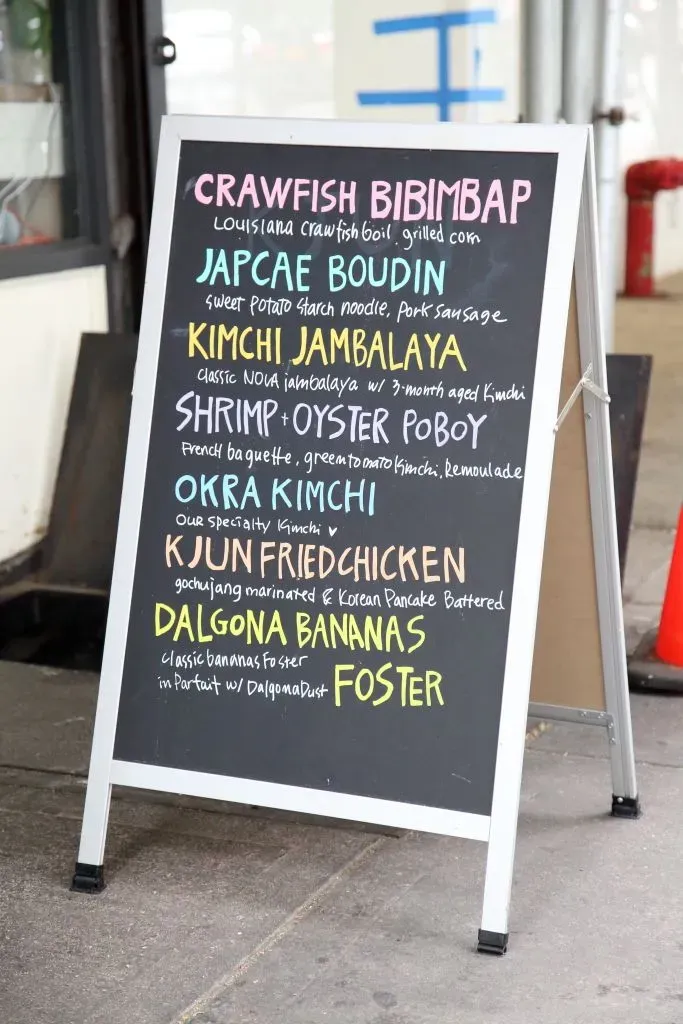 CRAWFISH BIBIMBAP
Louisiana crawfish boil, grilled corn
JAPCAE BOUDIN
sweet potato starch noodle, pork sausage
KIMCHI JAMBALAYA
classic NOLA jambalaya w/ 3-month aged kimchi
SHRIMP + OYSTER POBOY
French baguette, green tomato kimchi, Remoulade
OKRA KIMCHI
our specialty kimchi ♥
KJUN FRIED CHICKEN
gochujang marinated & Korean Pancake Battered
DALGONA BANANAS
classic bananas foster
in Parfait w/ Dalgona Dust FOSTER